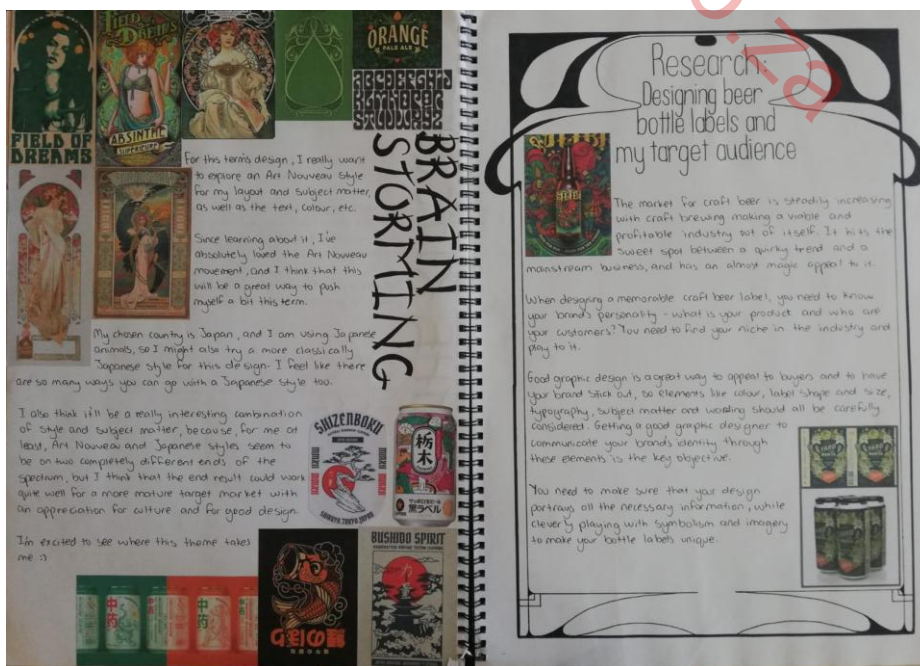 FIELD OF
DREAMS
FIELD OF
DREAMS
ABSINTHE
SUPERIEURE
ORANGE
PALE ALE
ABCDEFGHIJ
KLMNOPQR
STUVWXYZ
BRAIN
STORMING
For this term's design, I really want
to explore an Art Nouveau style
for my layout and subject matter,
as well as the text, colour, etc.
Since learning about it, I've
absolutely loved the Art Nouveau
movement, and I think that this
will be a great way to push
myself a bit this term.
My chosen country is Japan, and I am using Japanese
animals, so I might also try a more classically
Japanese style for this design. I feel like there
are so many ways you can go with a Japanese style too.
I also think it'll be a really interesting combination
of style and subject matter, because, for me at
least, Art Nouveau and Japanese styles seem to
be on two completely different ends of the
spectrum, but I think that the end result could work
quite well for a more mature target market with
an appreciation for culture and for good design.
I'm excited to see where this theme takes
me :)
SHIZENBOKU
SHIBUYA, TOKYO, JAPAN
栃木
黒ラベル
中药
中药
BUSHIDO SPIRIT
Research:
Designing beer
bottle labels and
my target audience
The market for craft beer is steadily increasing
with craft brewing making a viable and
profitable industry out of itself. It hits the
sweet spot between a quirky trend and a
mainstream business, and has an almost magic appeal to it.
When designing a memorable craft beer label, you need to know
your brand's personality - what is your product and who are
your customers? You need to find your niche in the industry and
play to it.
Good graphic design is a great way to appeal to buyers and to have
your brand stick out, so elements like colour, label shape and size,
typography, subject matter and wording should all be carefully
considered. Getting a good graphic designer to
communicate your brand's identity through
these elements is the key objective.
You need to make sure that your design
portrays all the necessary information, while
cleverly playing with symbolism and imagery
to make your bottle labels unique.
o.za